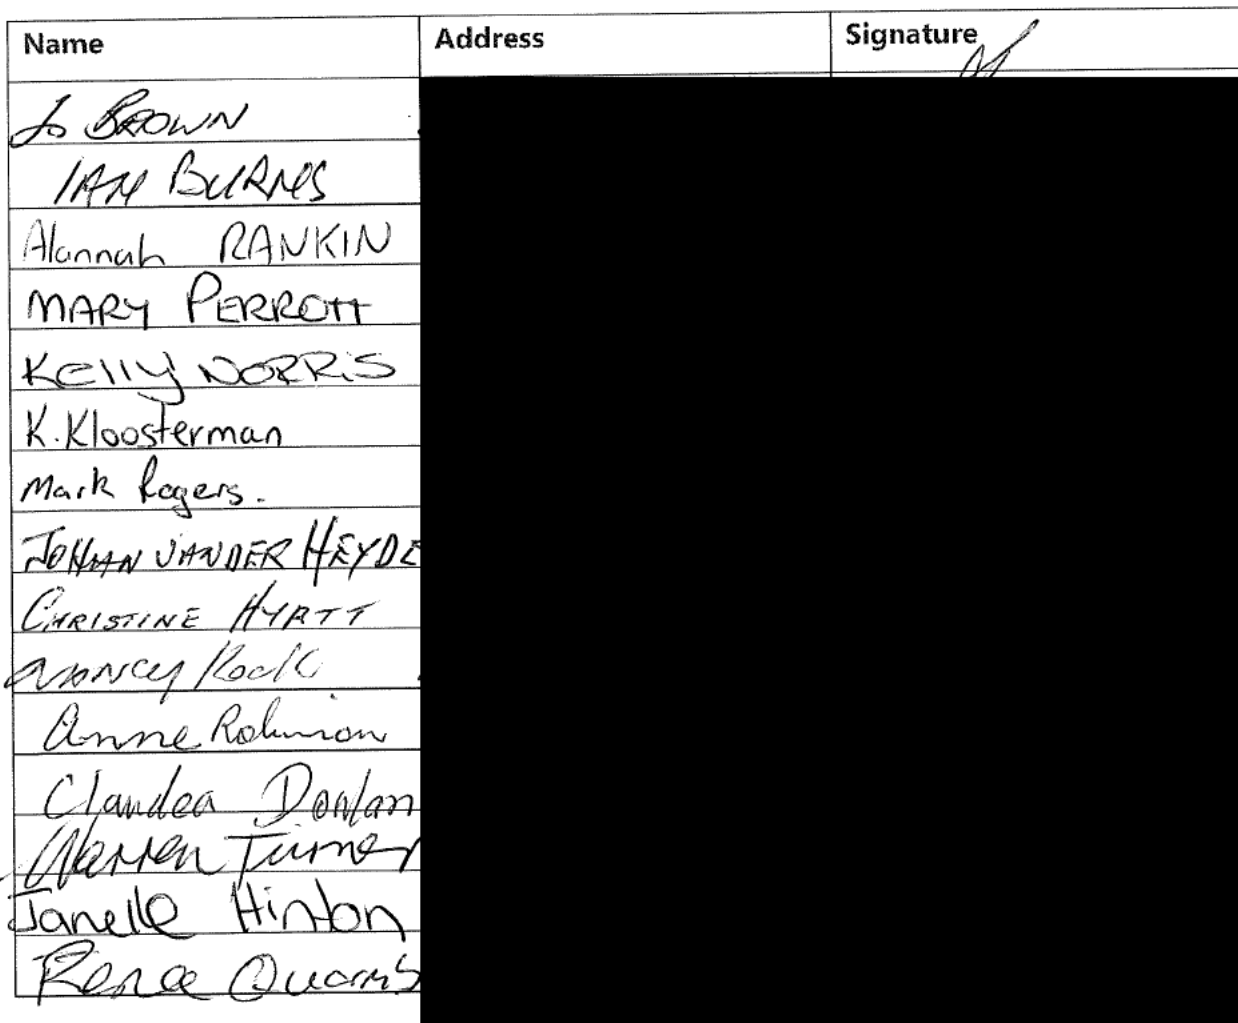 Name Address Signature
Jo BROWN
IAN BURNS
Alannah RANKIN
MARY PERROTT
Kelly NORRIS
K. Kloosterman
Mark Rogers.
JOHAN VANDER HEYDE
CHRISTINE HYATT
NANCY Rock
Anne Robinson
Claudea Donlan
Warren Turner
Janelle Hinton
Renee Quarmb